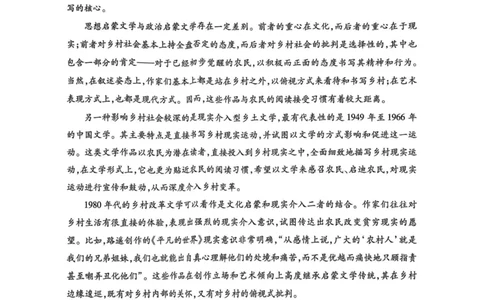 写的核心。
思想启蒙文学与政治启蒙文学存在一定差别。前者的重心在文化，而后者的重心在于现
实；前者对乡村社会基本上持全盘否定的态度，而后者对乡村社会的批判是选择性的，其中也
包含一部分的肯定——对于已经初步觉醒的农民，以积极而正面的态度书写其精神和行为。
当然，在叙述姿态上，作家们基本上都是站在乡村之外，以俯视方式来看待和书写乡村；在艺术
表现方式上，也都是现代方式。因而，这些作品与农民的阅读接受习惯有着较大距离。
另一种影响乡村社会较深的是现实介入型乡土文学，最有代表性的是 1949 年至 1966 年
的中国文学。其主要特点是直接书写乡村现实运动，并试图以文学的方式影响和促进这一运
动。这类文学作品以农民为潜在读者，直接投入到乡村现实之中，全面细致地描写乡村现实运
动，在文学形式上，它也更为贴近农民的阅读习惯，希望以文学来感召农民、启迪农民，对现实
运动进行宣传和鼓动，从而深度介入乡村变革。
1980 年代的乡村改革文学可以看作是文化启蒙和现实介入二者的结合。作家们往往对
乡村生活有很直接的体验，表现出强烈的现实介入意识，试图传达出农民改变贫穷现实的愿
望。比如，路遥创作的《平凡的世界》现实意识非常明确，“从感情上说，广大的‘农村人’就是
我们的兄弟姐妹，我们也就能出自真心理解他们的处境和痛苦，而不是优越而痛快地只顾指责
甚至嘲弄丑化他们”。这些作品在创作立场和艺术倾向上高度继承启蒙文学传统，其在乡村
边缘逡巡，既有对乡村内部的关怀，又有对乡村的俯视式批判。